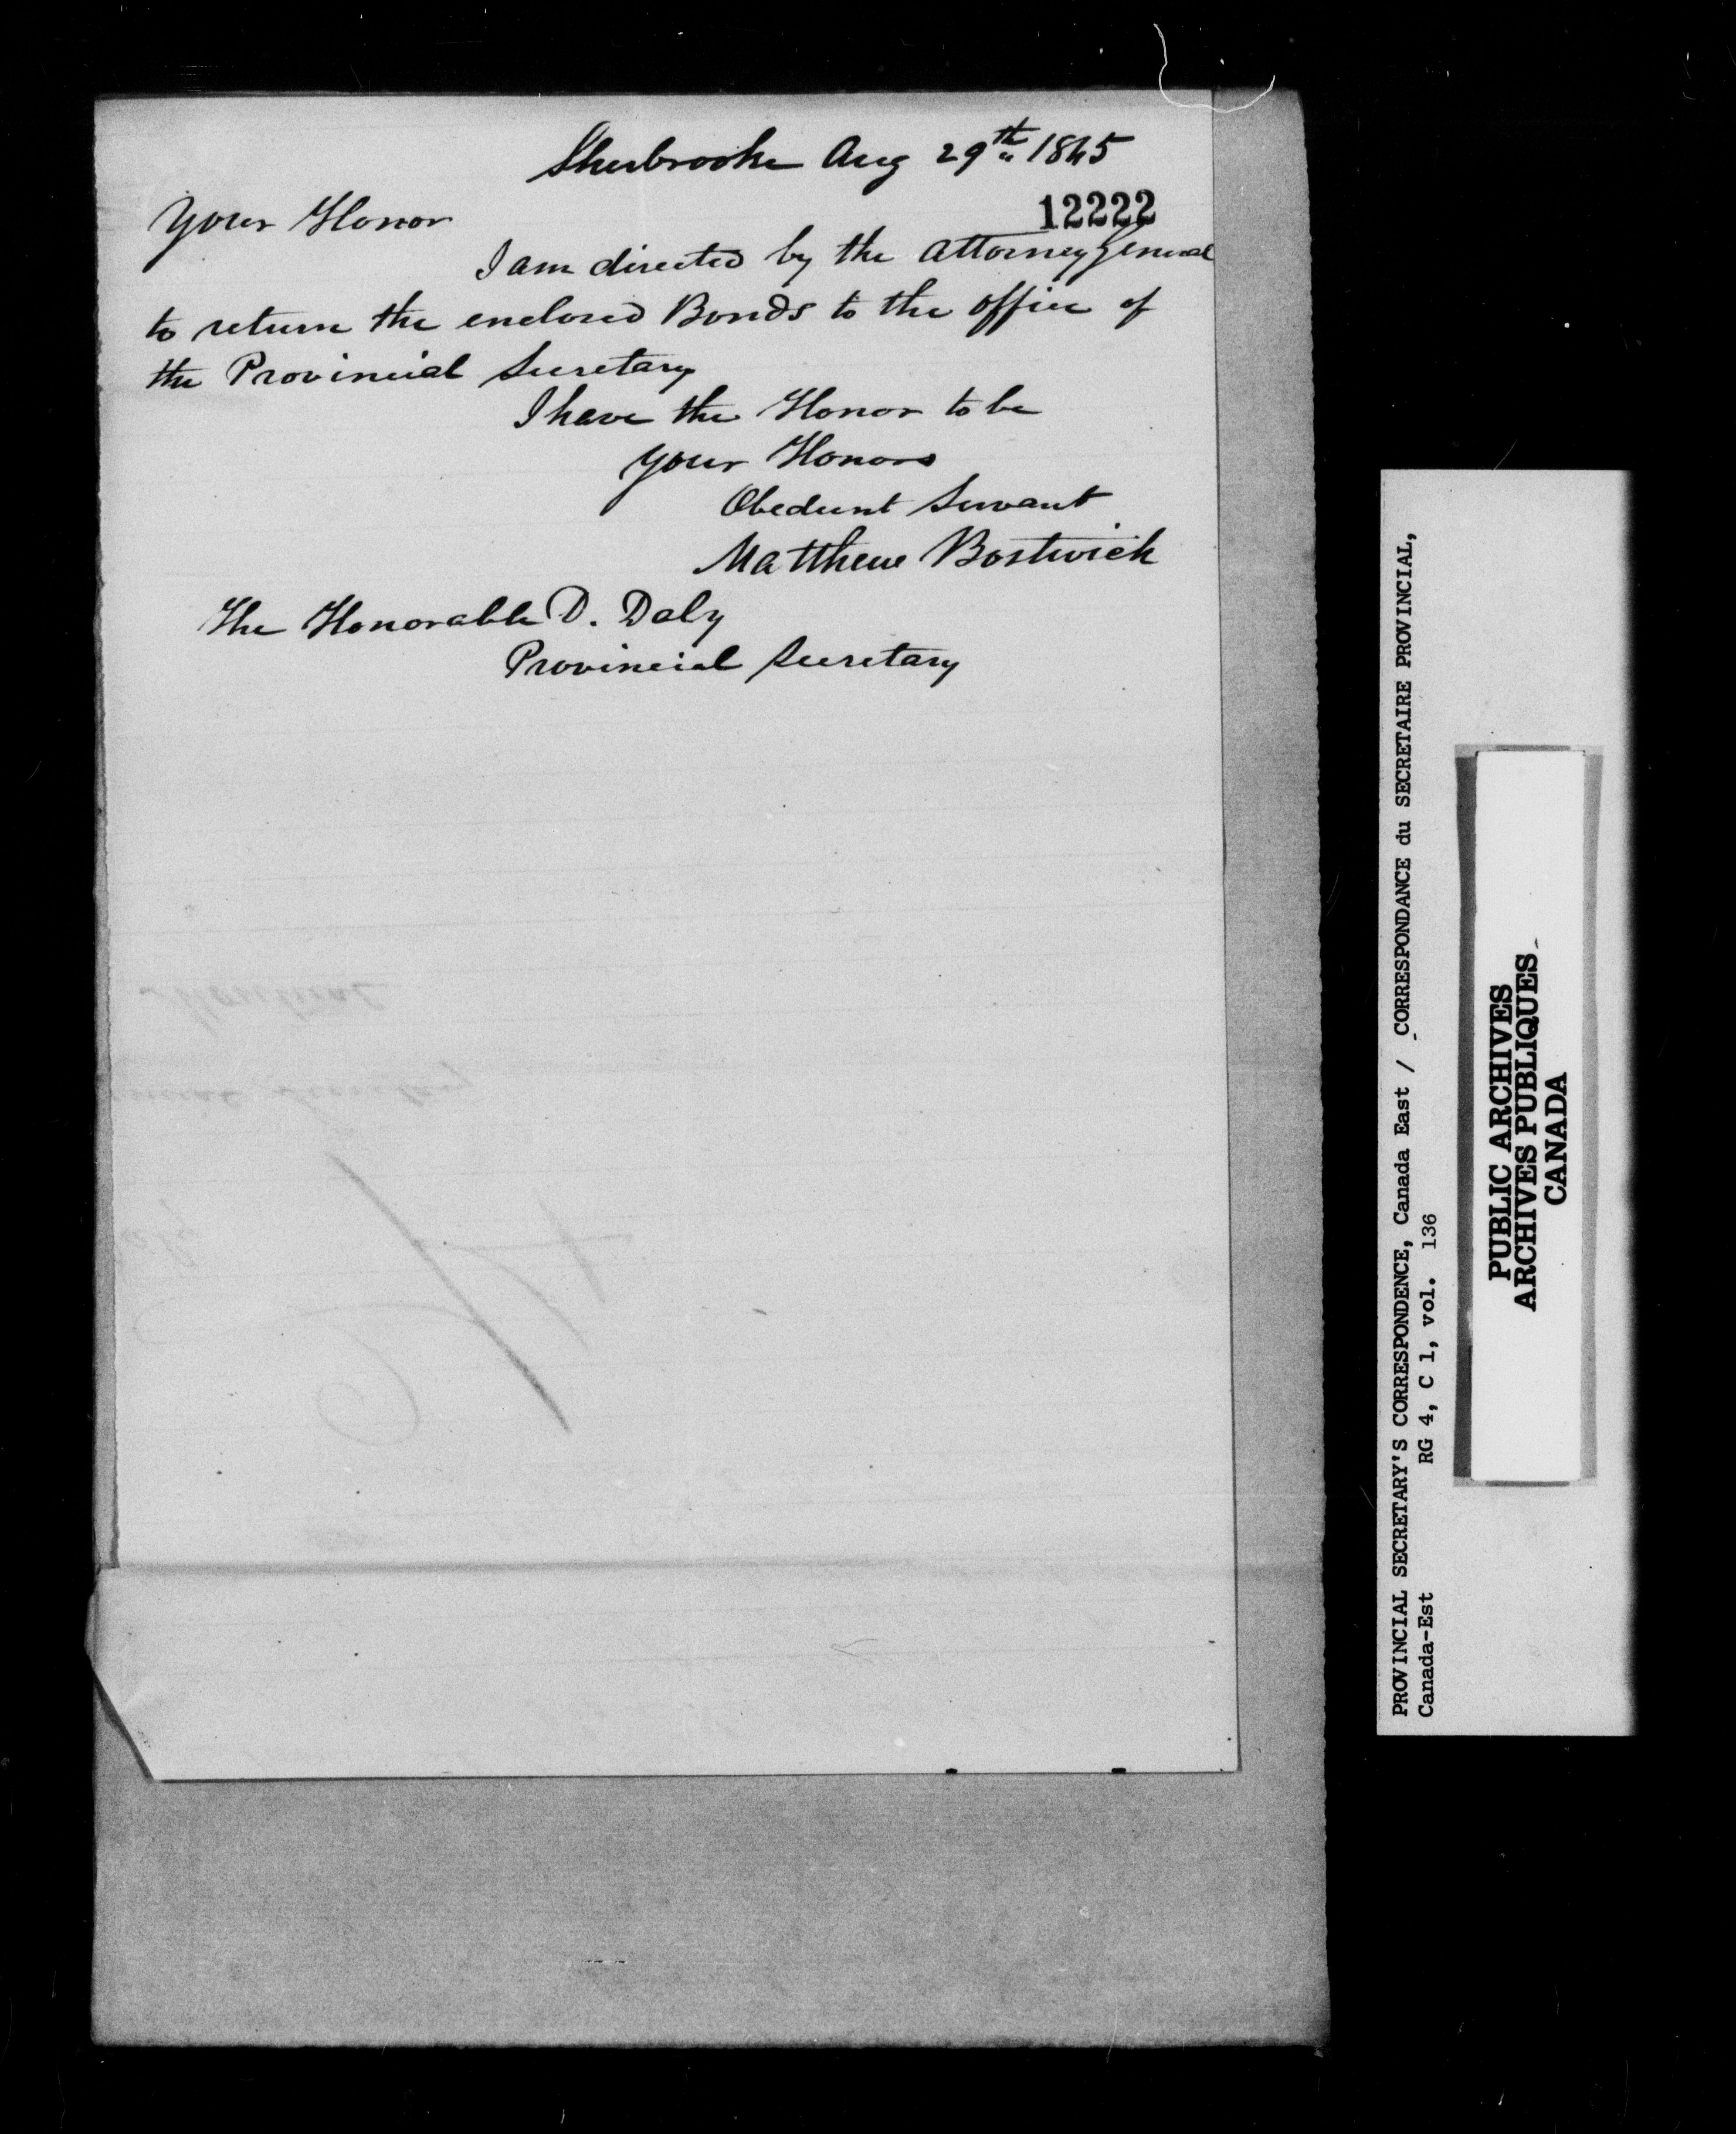 Sherbrooke Aug 29th 1845
12222
Your Honor
I am directed by the Attorney General
to return the enclosed Bonds to the office of
the Provincial Secretary
I have the Honor to be
Your Honors
Obedient Servant
Matthew Bostwick
The Honorable D. Daly
Provincial Secretary
PROVINCIAL SECRETARY'S CORRESPONDENCE, Canada East / CORRESPONDANCE du SECRETAIRE PROVINCIAL,
Canada-Est RG 4, C 1, vol. 136
PUBLIC ARCHIVES
ARCHIVES PUBLIQUES
CANADA